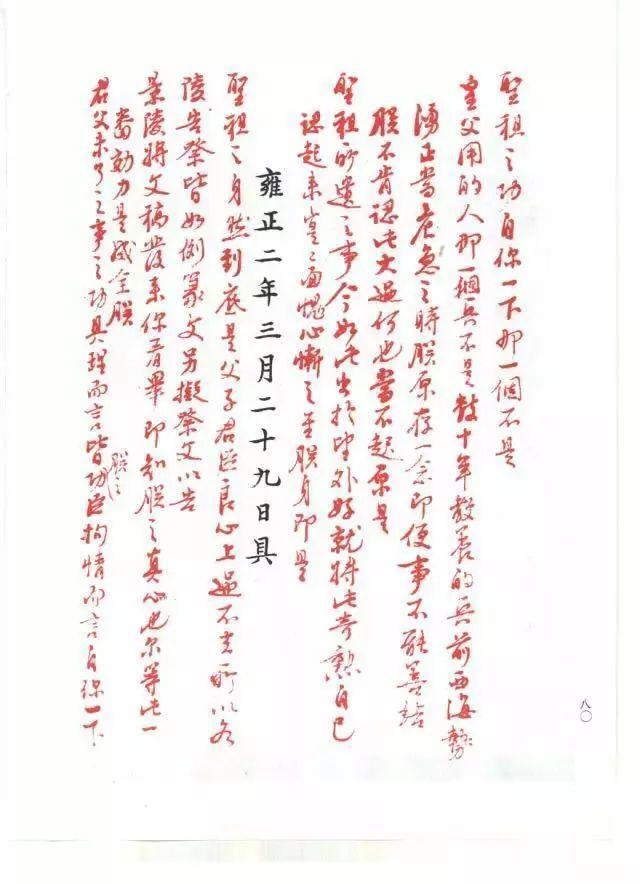 聖祖之功自你一下那一個不是
皇父用的人那一個兵不是數十年教養的兵前西海勢
湧正當危急之時朕原存一念即便事不能善結
朕不肯認此大過何也當不起原是
聖祖所遺之事今如此出於望外好就將此奇勲自己
認起來寔〻面愧心慚之至朕身即是
雍正二年三月二十九日具
聖祖之身然到底是父子君臣良心上過不去所以各
陵告祭皆如例篆文另擬祭文以告
景陵將文稿發來你看畢即知朕之真心也尔等此一
番効力是成全朕
君父未了之事之功具理而言皆朕之功臣拘情而言自你一下
八〇